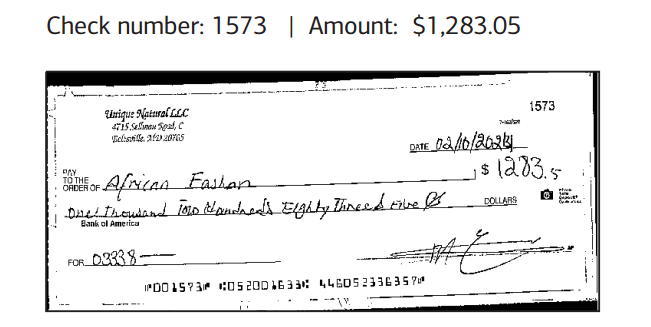 Check number: 1573 | Amount: $1,283.05
1573
Unique Natural LLC
4715 Sellman Road, C
Beltsville, MD 20705
DATE 02/10/2024
PAY TO THE ORDER OF African Fashan $ 1283.5
One Thousand Two Handred's Eighty Threed Five DOLLARS
Bank of America
FOR 03338
⑈001573⑈ ⑆052001633⑆ 446052336357⑈